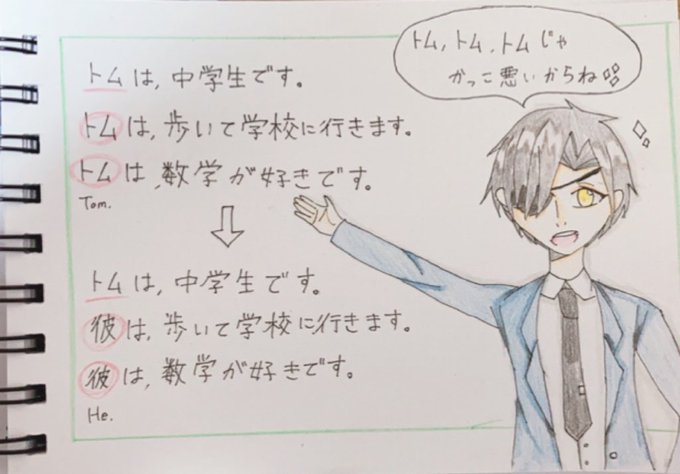 トム，トム，トムじゃ
かっこ悪いからね
トムは，中学生です。
トムは，歩いて学校に行きます。
トムは，数学が好きです。
Tom.
トムは，中学生です。
彼は，歩いて学校に行きます。
彼は，数学が好きです。
He.